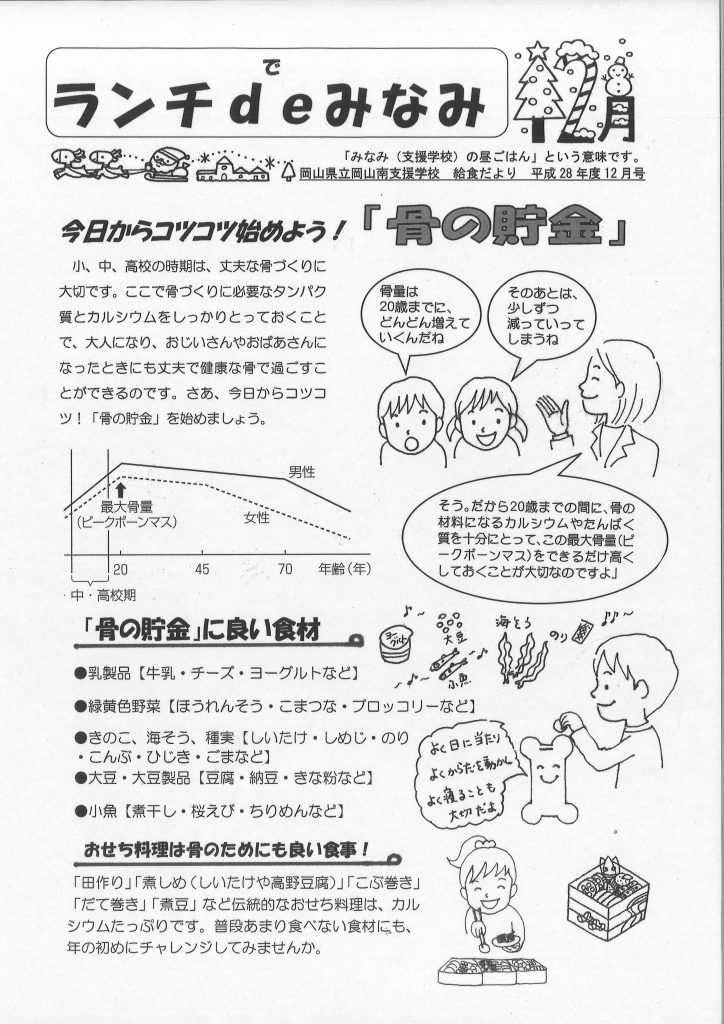 で
ランチdeみなみ
12月
「みなみ（支援学校）の昼ごはん」という意味です。
岡山県立岡山南支援学校　給食だより　平成28年度12月号
今日からコツコツ始めよう！「骨の貯金」
　小、中、高校の時期は、丈夫な骨づくりに
大切です。ここで骨づくりに必要なタンパク
質とカルシウムをしっかりとっておくこと
で、大人になり、おじいさんやおばあさんに
なったときにも丈夫で健康な骨で過ごすこ
とができるのです。さあ、今日からコツコ
ツ！「骨の貯金」を始めましょう。
骨量は
20歳までに、
どんどん増えて
いくんだね
そのあとは、
少しずつ
減っていって
しまうね
そう。だから20歳までの間に、骨の
材料になるカルシウムやたんぱく
質を十分にとって、この最大骨量（ピ
ークボーンマス）をできるだけ高く
しておくことが大切なのですよ」
男性
最大骨量
（ピークボーンマス）
女性
20　45　70　年齢（年）
・中・高校期
「骨の貯金」に良い食材
●乳製品【牛乳・チーズ・ヨーグルトなど】
●緑黄色野菜【ほうれんそう・こまつな・ブロッコリーなど】
●きのこ、海そう、種実【しいたけ・しめじ・のり
・こんぶ・ひじき・ごまなど】
●大豆・大豆製品【豆腐・納豆・きな粉など】
●小魚【煮干し・桜えび・ちりめんなど】
ヨーグルト
大豆
小魚
海そう
のり
よく日に当たり
よくからだを動かし
よく寝ることも
大切だよ
おせち料理は骨のためにも良い食事！
「田作り」「煮しめ（しいたけや高野豆腐）」「こぶ巻き」
「だて巻き」「煮豆」など伝統的なおせち料理は、カル
シウムたっぷりです。普段あまり食べない食材にも、
年の初めにチャレンジしてみませんか。